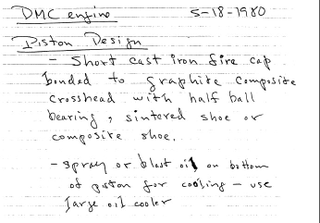 DMC engine 5-18-1980
Piston Design
- Short cast iron fire cap
bonded to graphite composite
crosshead with half ball
bearing, sintered shoe or
composite shoe.
- spray or blast oil on bottom
of piston for cooling - use
large oil cooler